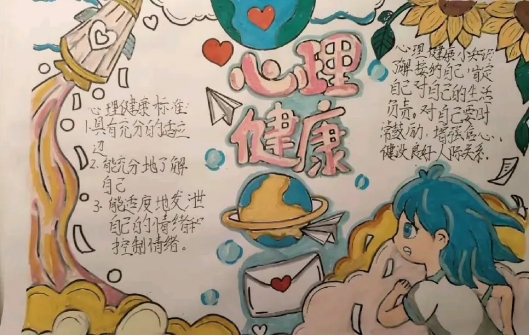 心理
健康
心理健康标准
1.具有充分的适应
2.能充分地了解
自己
3.能适度地发泄
自己的情绪和
控制情绪。
心理健康小知识
了解接纳自己,肯定
自己对自己的生活
负责。对自己要时
常鼓励,增强信心,
建设良好人际关系.